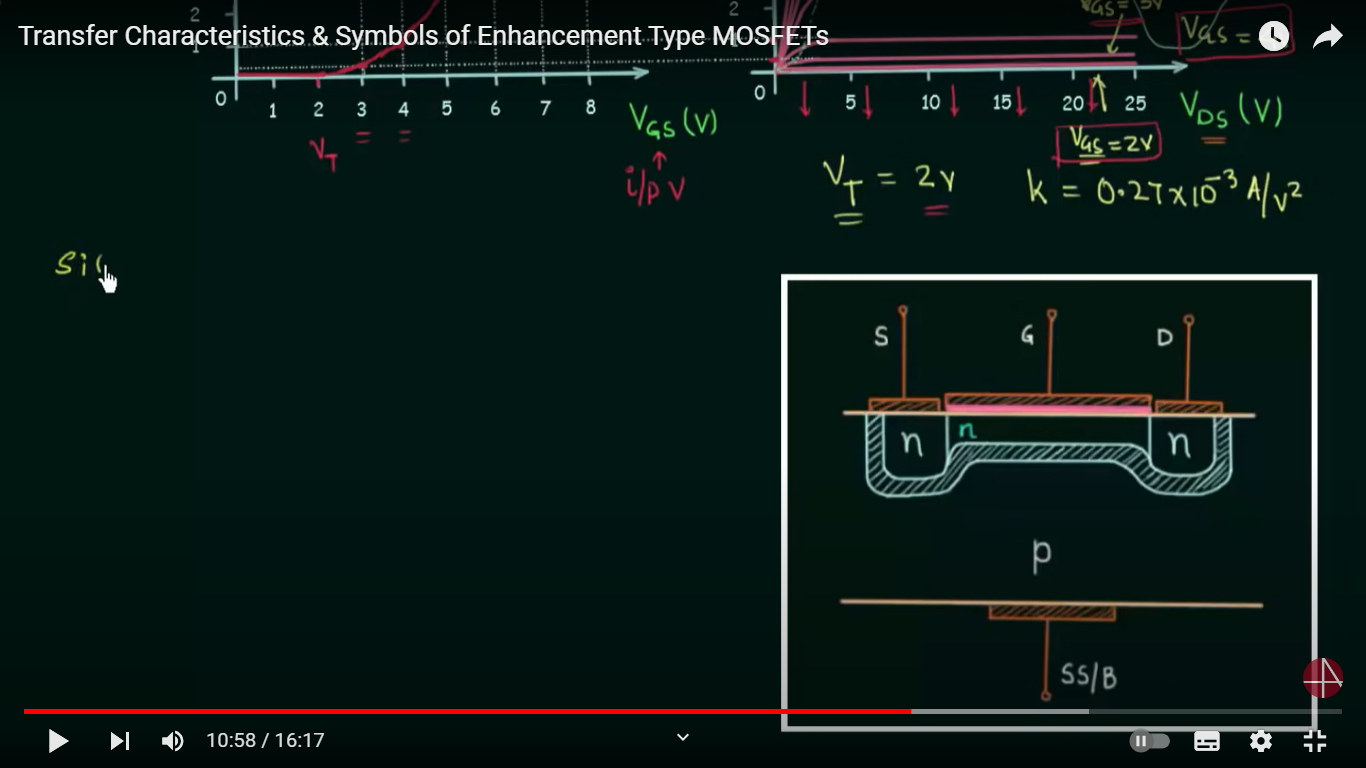 Transfer Characteristics & Symbols of Enhancement Type MOSFETs
2
1
0 1 2 3 4 5 6 7 8
V_GS (V)
V_T = =
i/p V
2
V_GS =
0 5 10 15 20 25
V_DS (V)
V_GS = 2V
V_T = 2V
k = 0.27×10⁻³ A/V²
Si
S G D
n n n
p
SS/B
10:58 / 16:17